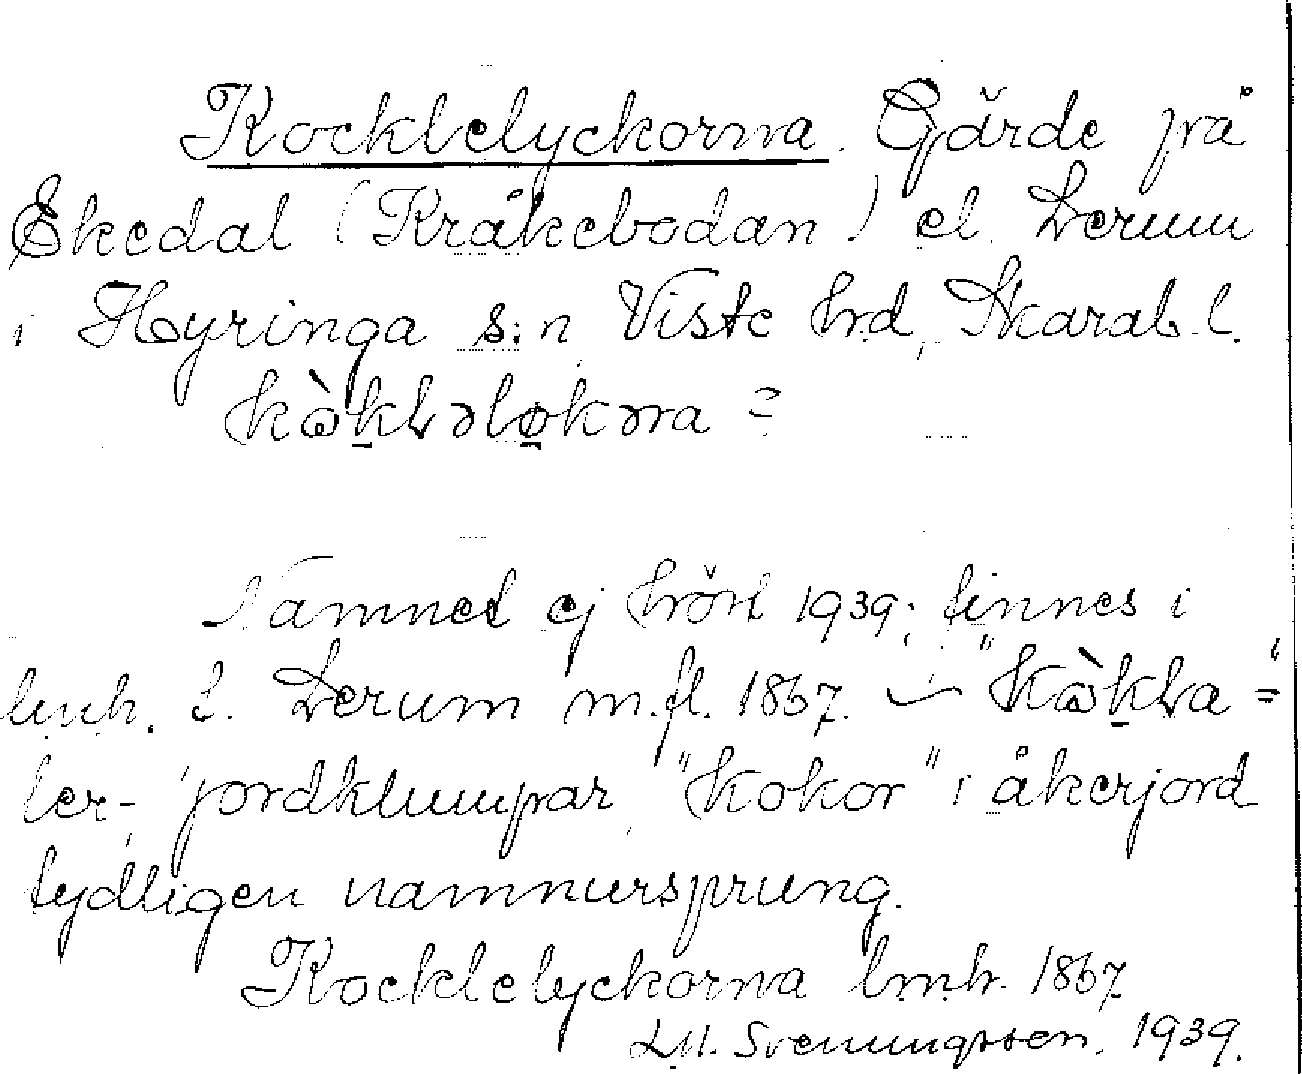 Kocklelyckorna. Gärde på
Ekedal (Kråkebodan) el. Lerum
i Hyringa s:n Viste hrd, Skarab. l.
kὼkLəløkəra =
Namnet ej hört 1939; finnes i
lmh. t. Lerum m.fl. 1867. — "KὼkLa="
ler-, jordklumpar, "kokor" i åkerjord
tydligen namnursprung.
Kocklelyckorna lmh. 1867
Svenungsson. 1939.